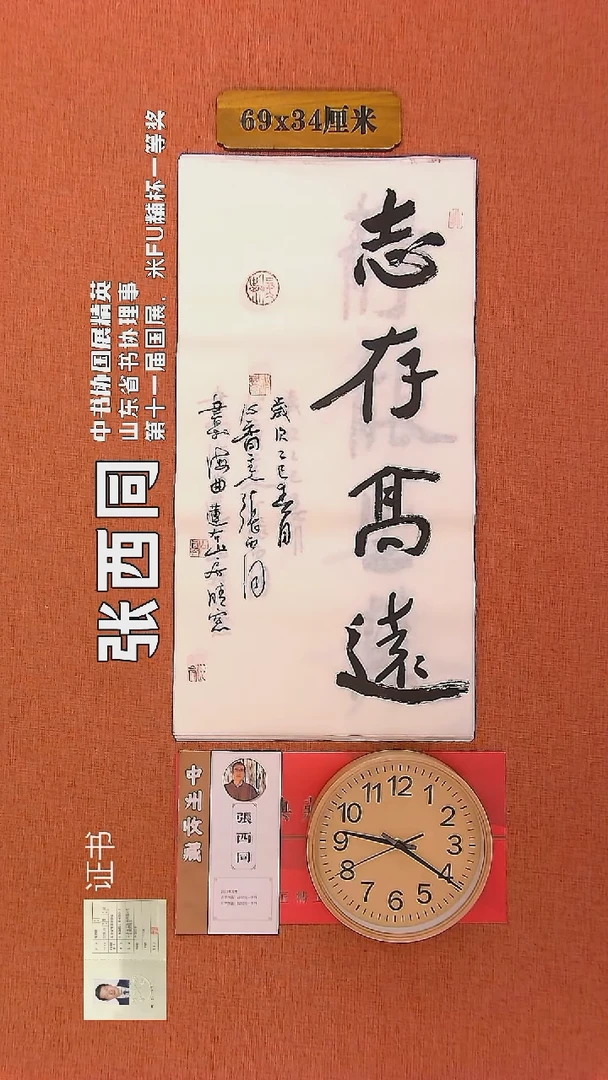 69x34厘米
志存高遠
歲次乙巳春月
沁香斋张西同
書於海曲蓮左山房晴窓
中书协国展精英
山东省书协理事
第十一届国展，米FU黼杯一等奖
张西同
证书
中生收藏
張西同
12
1
2
3
4
5
6
7
8
9
10
11